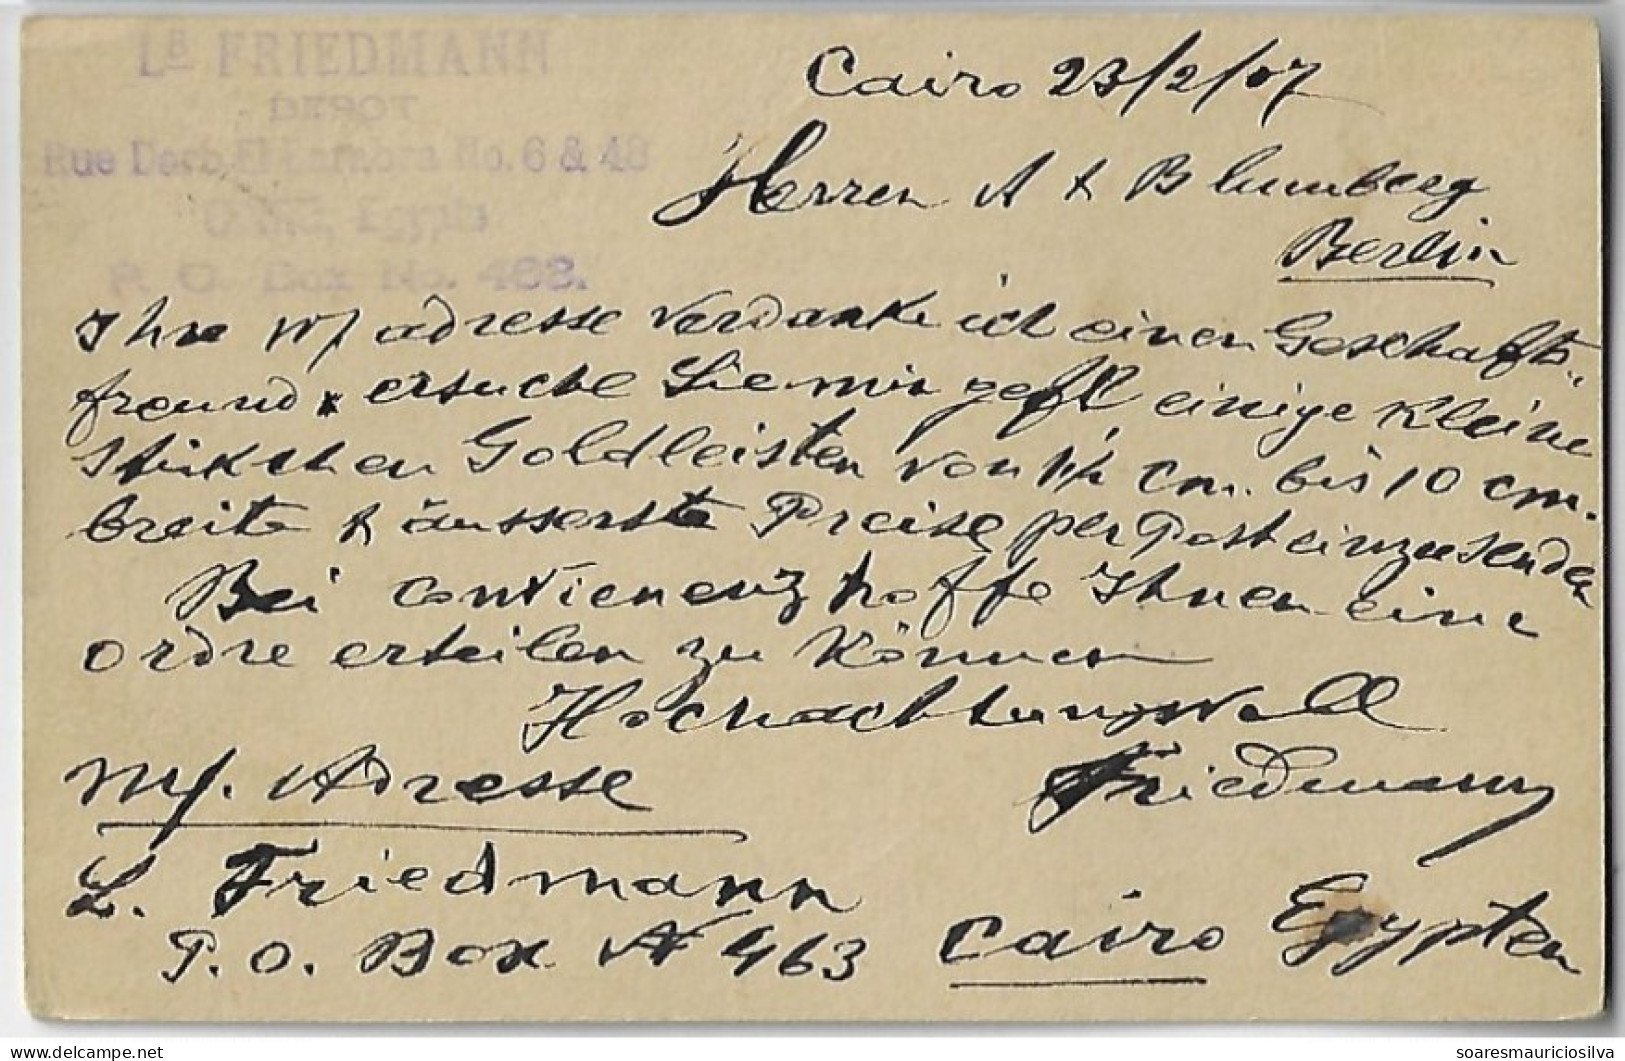 LB FRIEDMANN
DEPOT
Rue Darb El No. 6 & 48
Egypte
P. O. Box No. 463.
Cairo 23/2/07
Herren A & B Blumberg
Berlin
Ihre w/ adresse verdanke ich einen Geschäfts-
freund & ersuche Sie mir gefl einige kleine
Stükchen Goldleisten von 1½ cm. bis 10 cm.
breite & äusserste Preise per Post einzusenden
Bei convienenz hoffe Ihnen eine
ordre erteilen zu können
Hochachtungsvoll
Friedmann
m/. Adresse
L. Friedmann
P. O. Box N 463 Cairo Egypten
soaresmauriciosilva